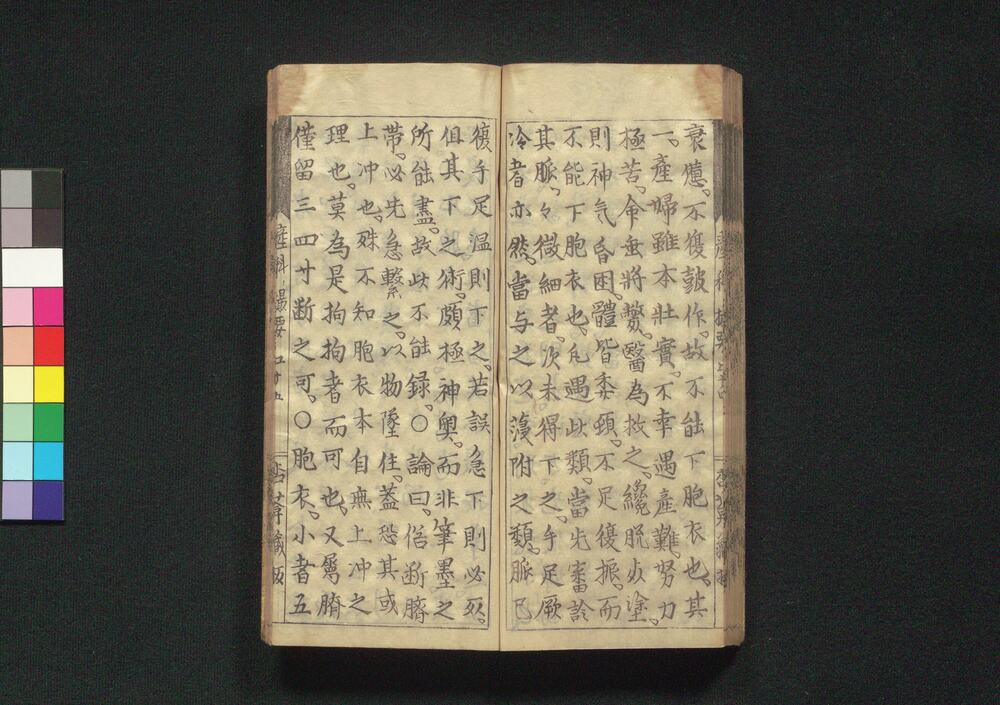 衰憊。不復鼓作。故不能下胞衣也。其
一。產婦雖本壯實。不幸遇產難。努力
極苦。命虫將斃。醫為救之。纔脫灾塗。
則神氣昏困。體皆委頓。不足復振。而
不能下胞衣也。凡遇此類。當先審診
其脈。々微細者。次未得下之。手足厥
冷者亦然。當与之以蔆附之類。脈已
復手足温則下之。若誤急下則必死。
但其下之術。頗極神奧。而非筆墨之
所能盡。故此不能録。〇論曰。俗断臍
帶。必先急繫之。以物墜住。蓋恐其或
上冲也。殊不知胞衣本自無上冲之
理也。莫為是拘拘者而可也。又屬臍
僅留三四寸断之可。〇胞衣。小者五
產科
撮要
五十五
杏華藏版